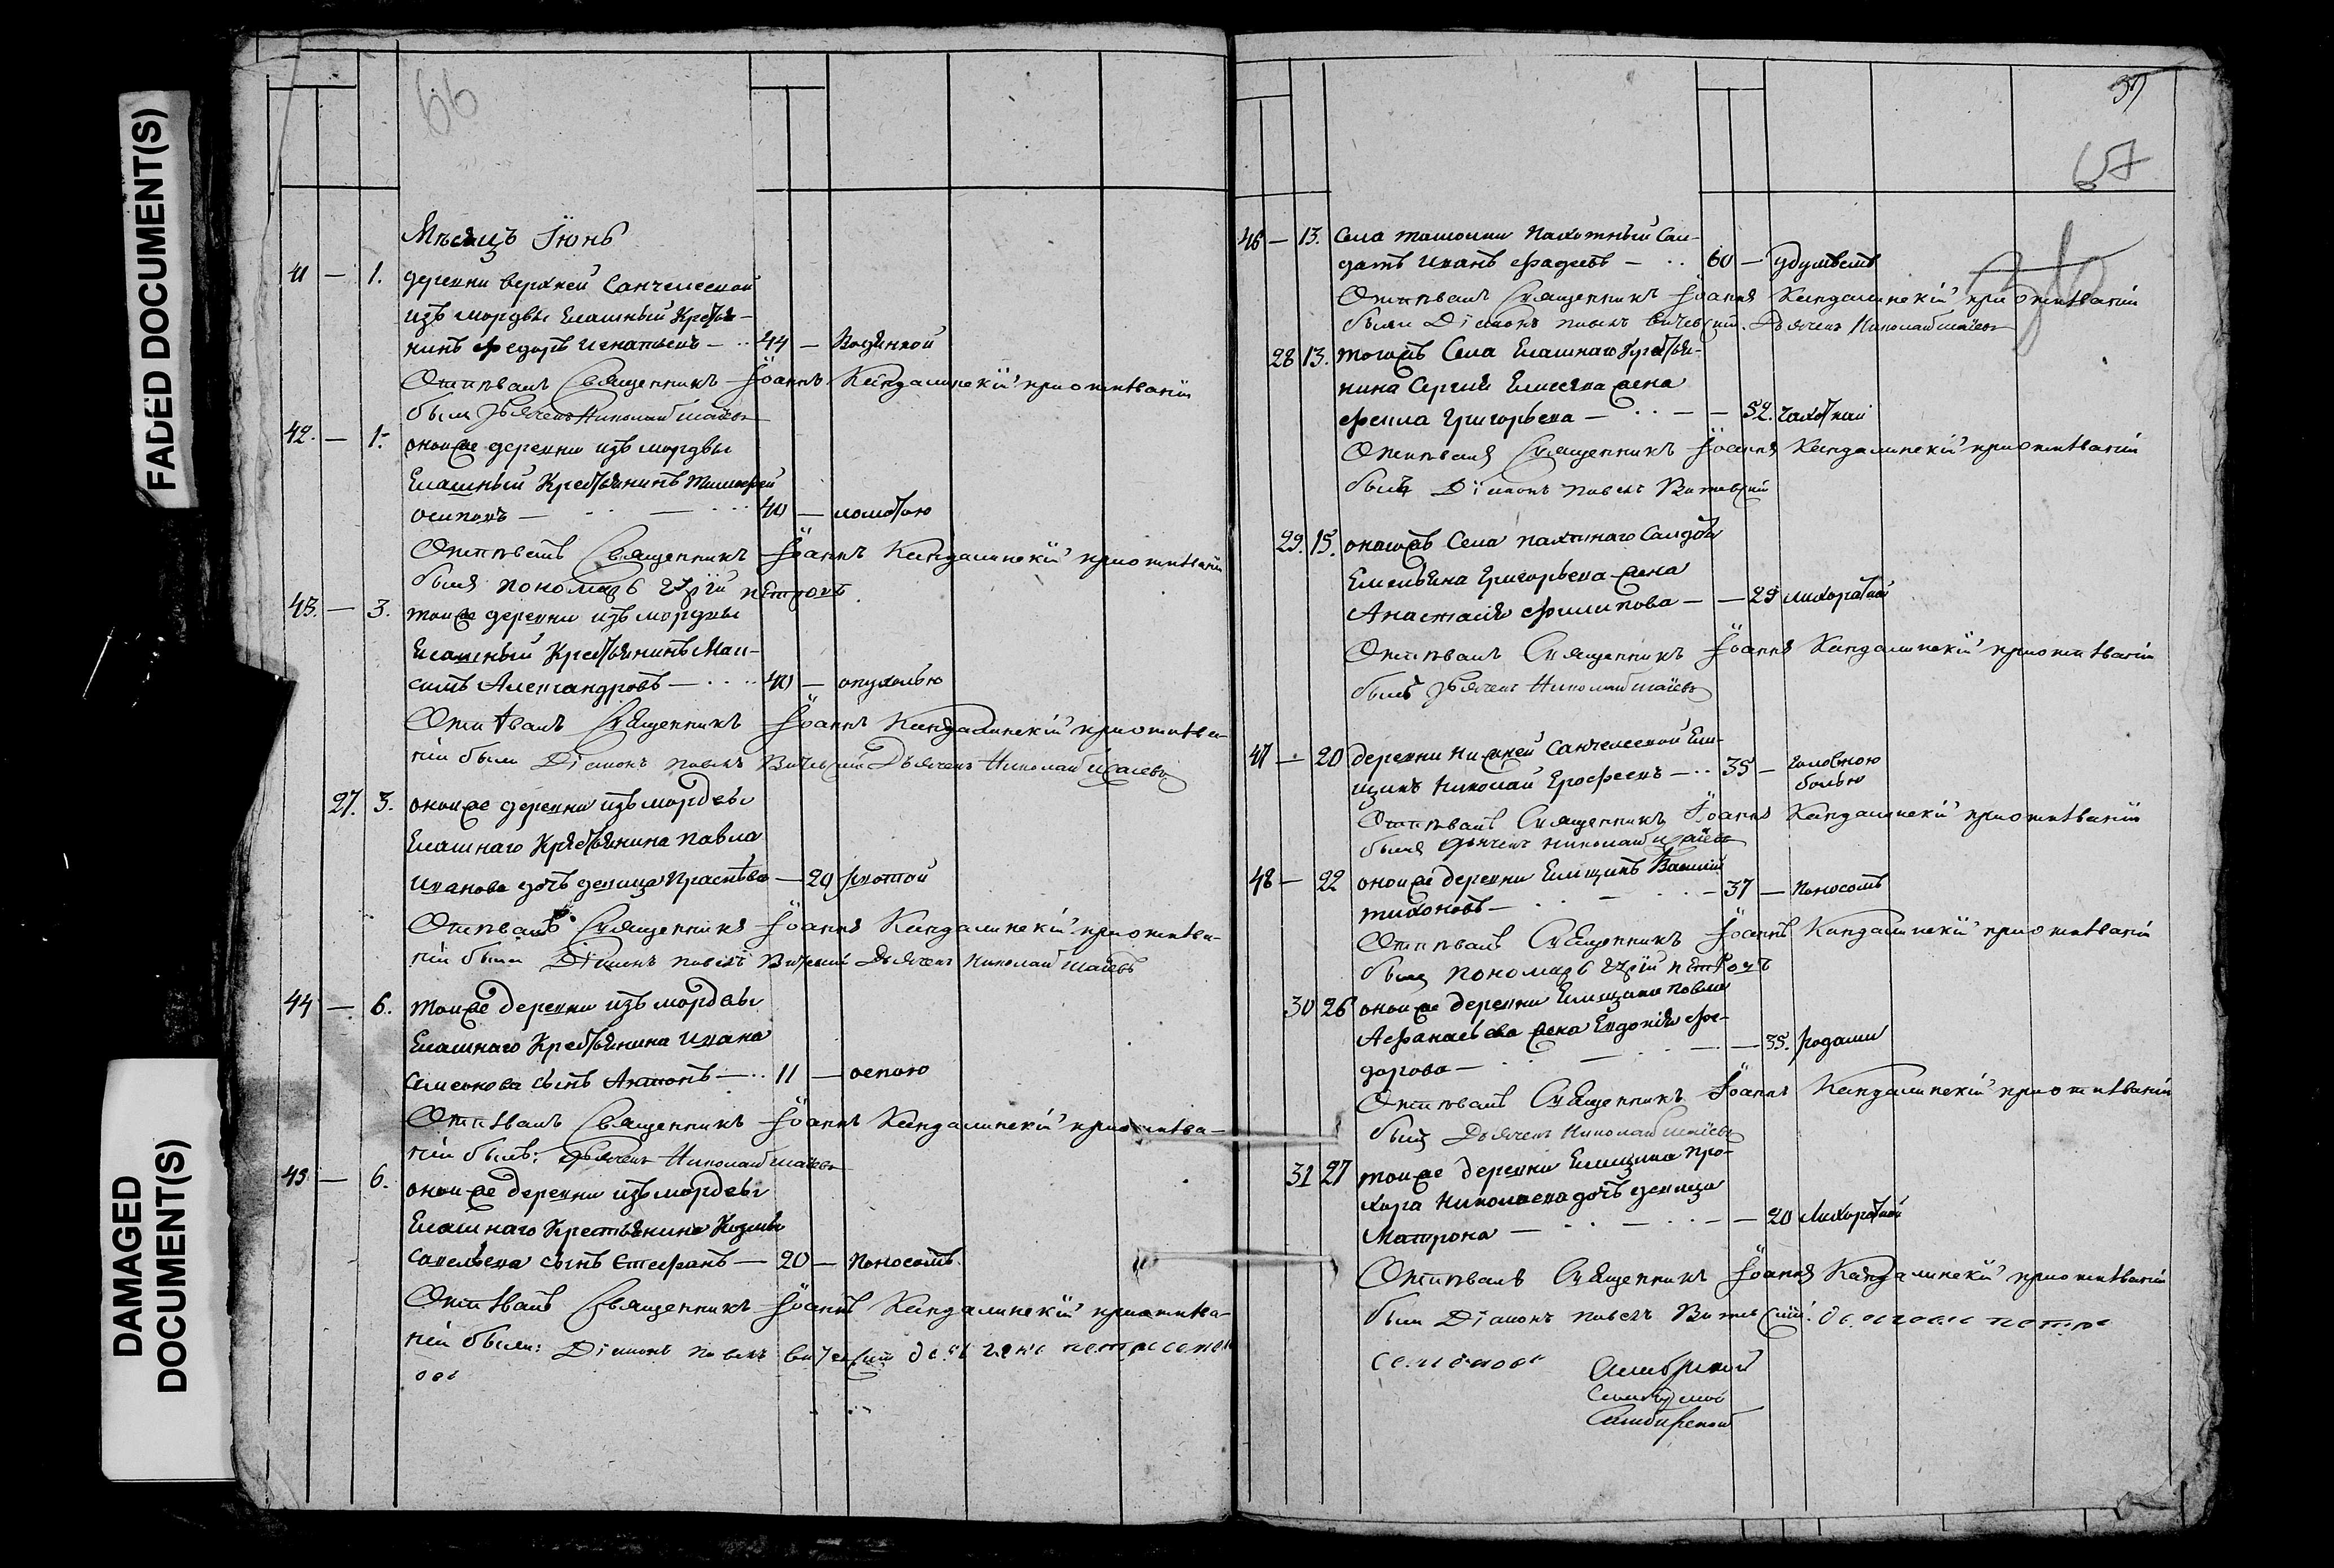 FADED DOCUMENT(S)
DAMAGED
DOCUMENT(S)
66
Мѣсяцъ Іюнь
41 — 1. деревни верхней Санчелеевой
изъ мордвы Ясашный Крестья-
нинъ Федоръ Игнатьевъ — 44 — Водянкой
Отпѣвалъ Священникъ Іоаннъ Кандалинскій при отпѣваніи
былъ Дьячекъ Николай Исаíевъ
42. — 1. оной же деревни изъ мордвы
Ясашный Крестьянинъ Тимофей
Осиповъ — 40 — ломотою
Отпѣвалъ Священникъ Іоаннъ Кандалинскій при отпѣваніи
былъ пономарь Петровъ
43. — 3. той же деревни изъ мордвы
Ясашный Крестьянинъ Мак-
симъ Александровъ — 40 — опухолью
Отпѣвалъ Священникъ Іоаннъ Кандалинскій при отпѣва-
ніи были Діаконъ Павелъ Дьячекъ Николай Исаíевъ
27. 3. оной же деревни изъ мордвы
Ясашнаго Крестьянина Павла
Иванова дочь девица — 29
Отпѣвалъ Священникъ Іоаннъ Кандалинскій при отпѣва-
ніи были Діаконъ Павелъ Дьячекъ Николай Исаíевъ
44 — 6. той же деревни изъ мордвы
Ясашнаго Крестьянина Ивана
Семенова сынъ Антонъ — 11 — оспою
Отпѣвалъ Священникъ Іоаннъ Кандалинскій при отпѣва-
ніи былъ: Дьячекъ Николай Исаíевъ
45 — 6. оной же деревни изъ мордвы
Ясашнаго Крестьянина Козьмы
Савельева сынъ Стефанъ — 20 — поносомъ
Отпѣвалъ Священникъ Іоаннъ Кандалинскій при отпѣва-
ніи были: Діаконъ Павелъ дьячекъ петръ семен
овъ
37
67
46 — 13. Села Ташолки Пахотный Сол-
датъ Иванъ Фадеевъ — 60 — удушьемъ
Отпѣвалъ Священникъ Іоаннъ Кандалинскій при отпѣваніи
были Діаконъ Павелъ Дьячекъ Николай Исаíевъ
28 13. тогожъ Села Ясашнаго Крестья-
нина Сергия Елисеева жена
Фекла Григорьева — 52. чахоткой
Отпѣвалъ Священникъ Іоаннъ Кандалинскій при отпѣваніи
былъ Діаконъ Павелъ
29. 15. оногожъ Села пахотнаго Солдата
Емельяна Григорьева жена
Анастасія Филипова — 29 лихораткой
Отпѣвалъ Священникъ Іоаннъ Кандалинскій при отпѣваніи
былъ Дьячекъ Николай Исаíевъ
47 — 20 деревни нижней Санчелеевой Ям-
щикъ Николай Ерофеевъ — 35 — головною
болью
Отпѣвалъ Священникъ Іоаннъ Кандалинскій при отпѣваніи
былъ Дьячекъ Николай Исаíевъ
48 — 22 оной же деревни Ямщикъ Василій
Тихоновъ — 37 — поносомъ
Отпѣвалъ Священникъ Іоаннъ Кандалинскій при отпѣваніи
былъ пономарь Петровъ
30 26 оной же деревни Ямщика Павла
Афанасьева жена Евдокія Фе-
дорова — 35. родами
Отпѣвалъ Священникъ Іоаннъ Кандалинскій при отпѣваніи
былъ Дьячекъ Николай Исаíевъ
31 27 той же деревни Ямщика Про-
хора Николаева дочь девица
Матрона — 20 Лихораткой
Отпѣвалъ Священникъ Іоаннъ Кандалинскій при отпѣваніи
были Діаконъ Павелъ дьячекъ петръ
семеновъ
Симбирской